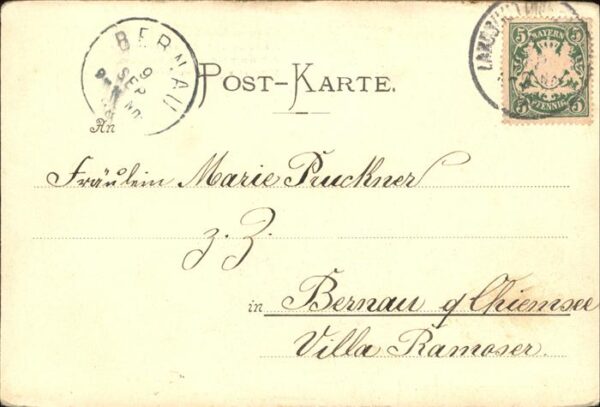 BERNAU
9
SEP
POST-KARTE.
LANDSHUT
5 BAYERN 5
5 PFENNIG 5
An
Fräulein Marie Pruckner
z. Z.
in Bernau a/Chiemsee
Villa Ramoser.